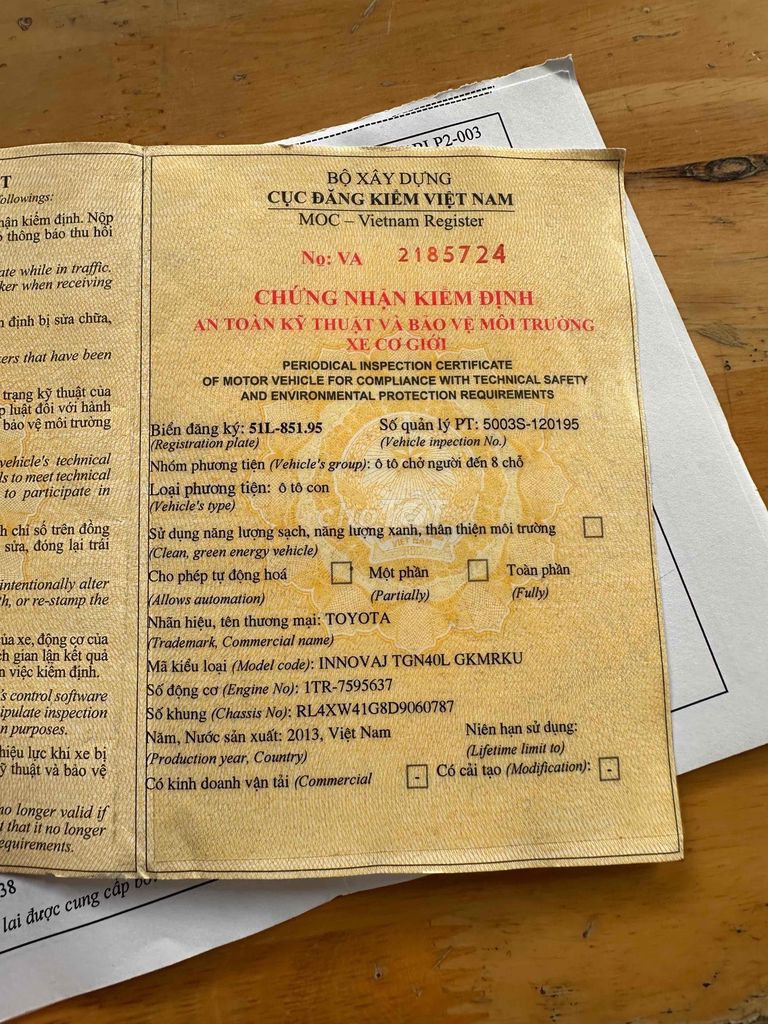 BLP2-003
T
followings:
hận kiểm định. Nộp
ó thông báo thu hồi
ate while in traffic.
ker when receiving
n định bị sửa chữa,
kers that have been
trạng kỹ thuật của
p luật đối với hành
bảo vệ môi trường
vehicle's technical
ls to meet technical
to participate in
h chỉ số trên đồng
sửa, đóng lại trái
intentionally alter
th, or re-stamp the
ủa xe, động cơ của
ch gian lận kết quả
n việc kiểm định.
's control software
ipulate inspection
n purposes.
hiệu lực khi xe bị
ỹ thuật và bảo vệ
no longer valid if
t that it no longer
equirements.
BỘ XÂY DỰNG
CỤC ĐĂNG KIỂM VIỆT NAM
MOC – Vietnam Register
No: VA 2185724
CHỨNG NHẬN KIỂM ĐỊNH
AN TOÀN KỸ THUẬT VÀ BẢO VỆ MÔI TRƯỜNG
XE CƠ GIỚI
PERIODICAL INSPECTION CERTIFICATE
OF MOTOR VEHICLE FOR COMPLIANCE WITH TECHNICAL SAFETY
AND ENVIRONMENTAL PROTECTION REQUIREMENTS
Biển đăng ký: 51L-851.95 Số quản lý PT: 5003S-120195
(Registration plate) (Vehicle inpection No.)
Nhóm phương tiện (Vehicle's group): ô tô chở người đến 8 chỗ
Loại phương tiện: ô tô con
(Vehicle's type)
Sử dụng năng lượng sạch, năng lượng xanh, thân thiện môi trường
(Clean, green energy vehicle)
Cho phép tự động hoá Một phần Toàn phần
(Allows automation) (Partially) (Fully)
Nhãn hiệu, tên thương mại: TOYOTA
(Trademark, Commercial name)
Mã kiểu loại (Model code): INNOVAJ TGN40L GKMRKU
Số động cơ (Engine No): 1TR-7595637
Số khung (Chassis No): RL4XW41G8D9060787
Năm, Nước sản xuất: 2013, Việt Nam Niên hạn sử dụng:
(Production year, Country) (Lifetime limit to)
Có kinh doanh vận tải (Commercial - Có cải tạo (Modification): -
38
lai được cung cấp